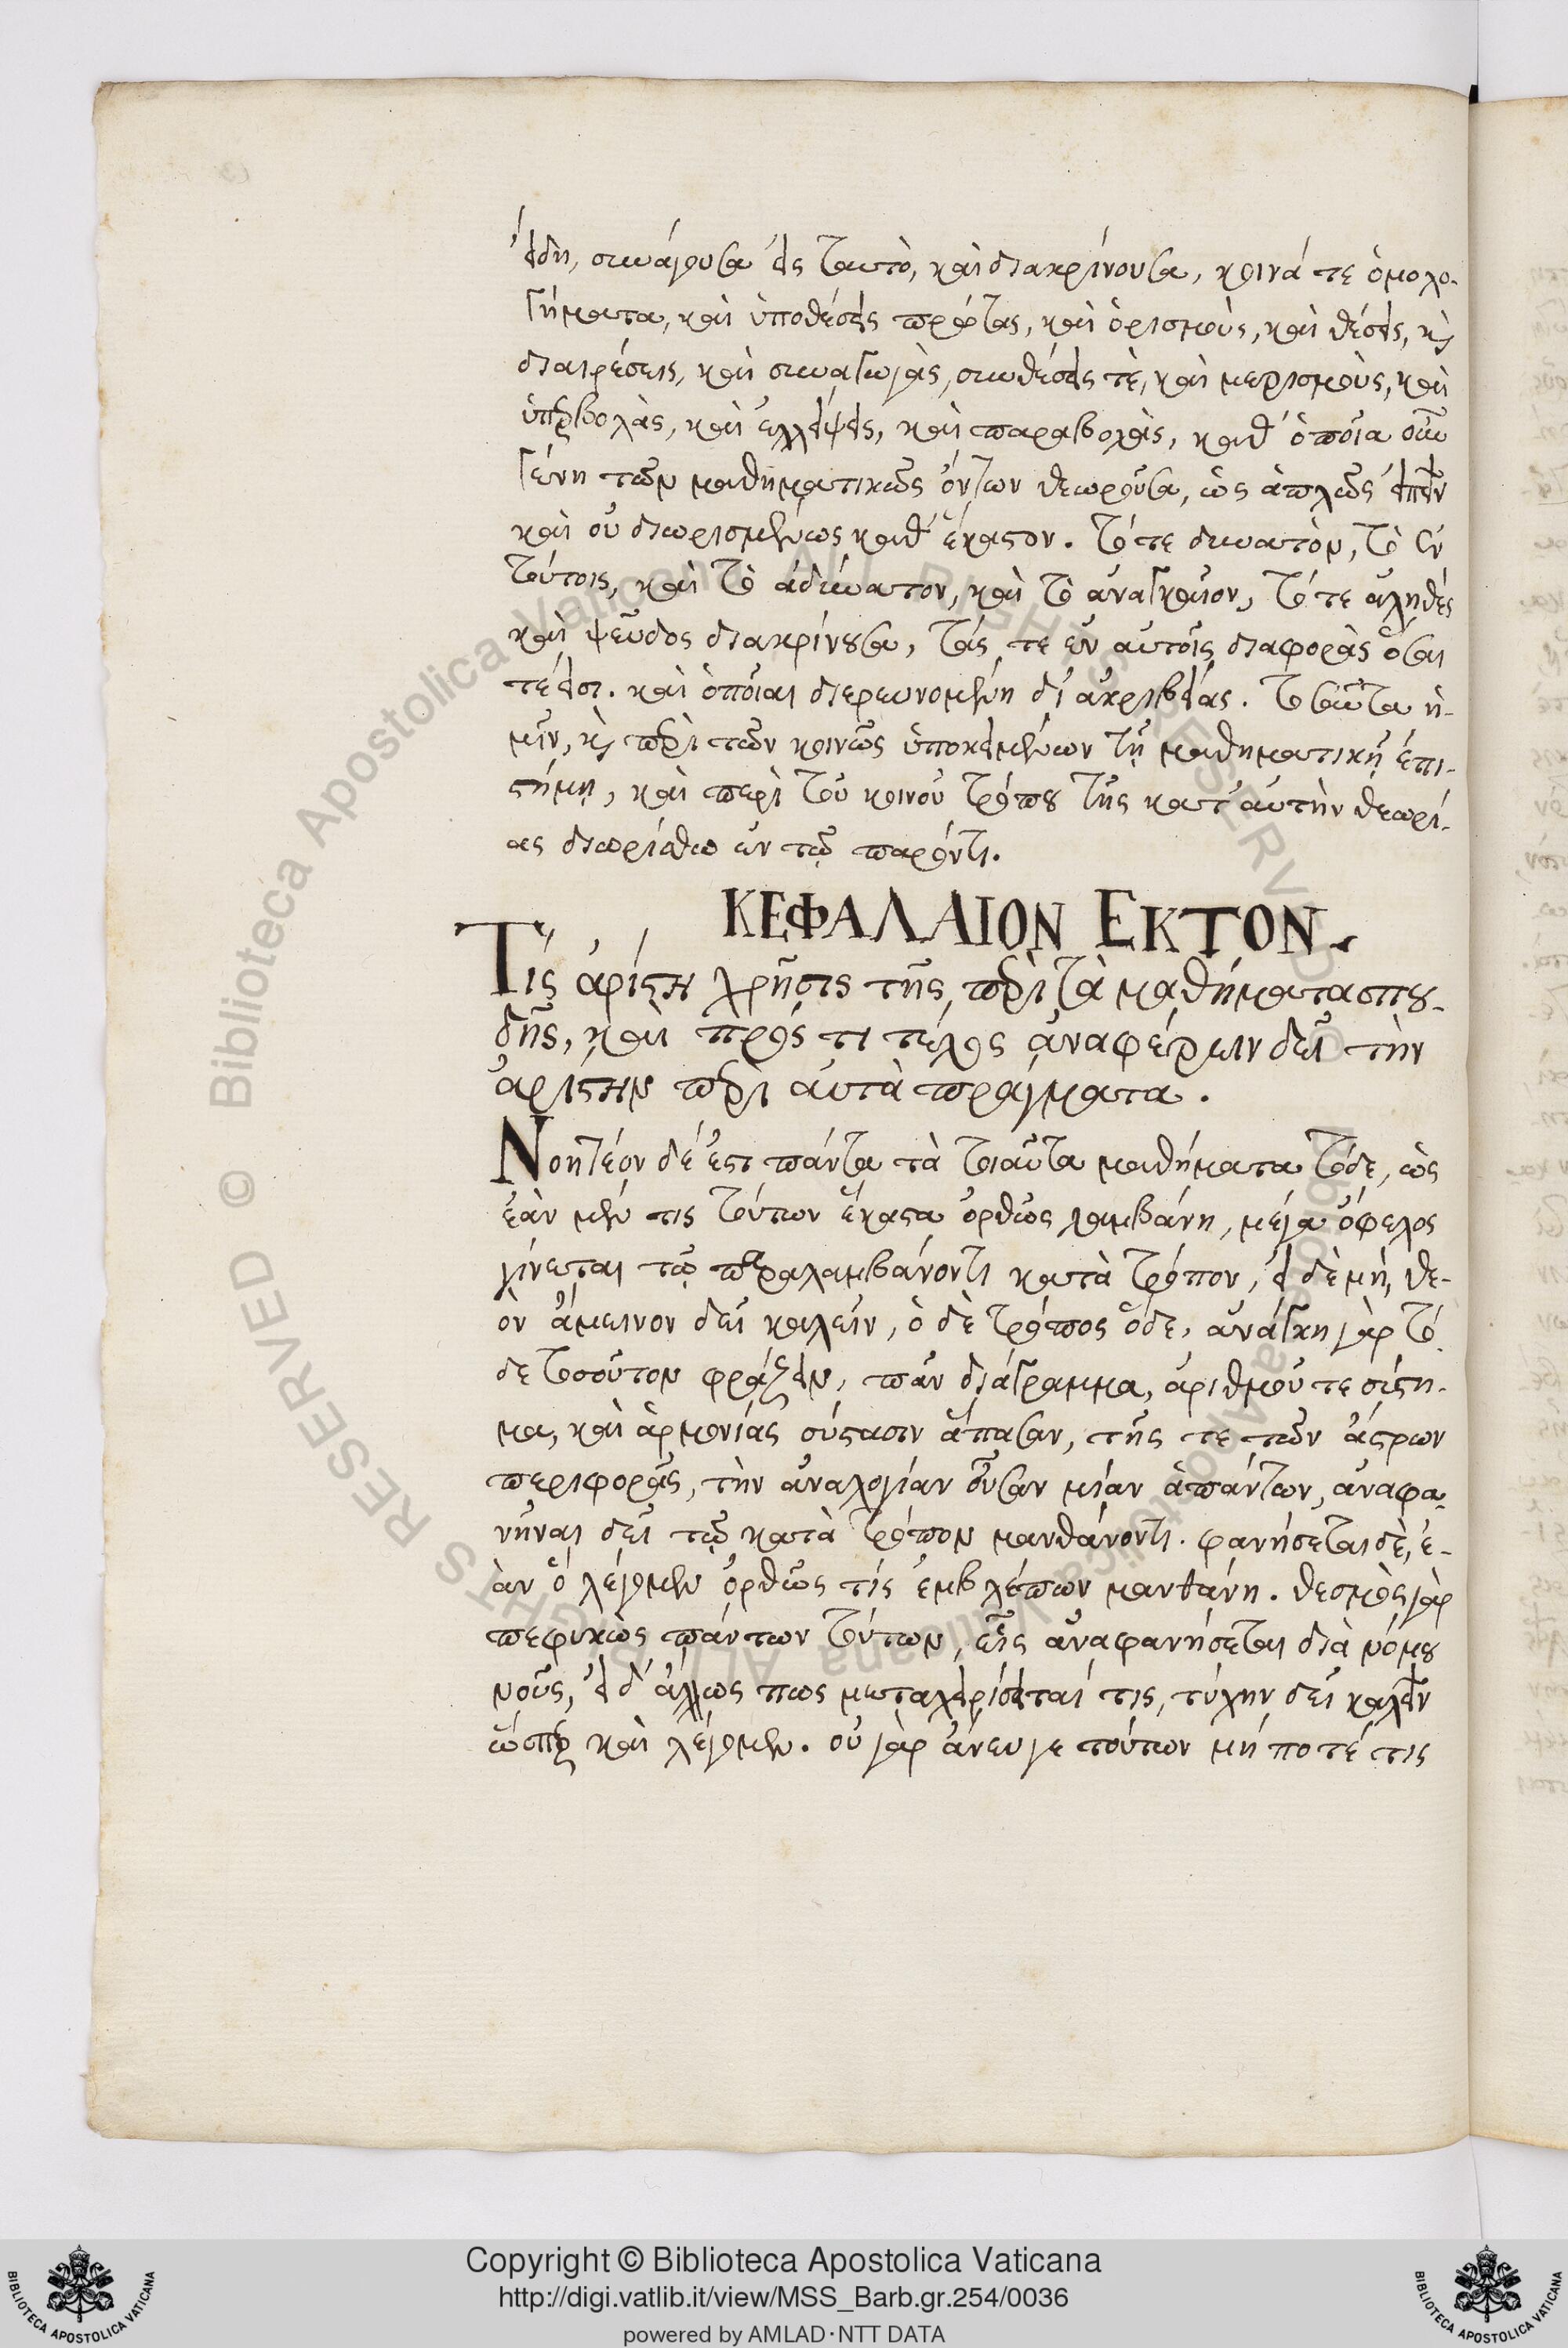 εἴδη, συνάγουσα εἰς ταυτὸ, καὶ διακρίνουσα, κοινά τε ὁμολο-
γήματα, καὶ ὑποθέσεις πρώτας, καὶ ὁρισμοὺς, καὶ θέσεις, καὶ
διαιρέσεις, καὶ συναγωγὰς, συνθέσεις τὲ, καὶ μερισμοὺς, καὶ
ὑπερβολὰς, καὶ ἐλλείψεις, καὶ παραβολὰς, καθ' ὁποῖα οὖν
γένη τῶν μαθηματικῶς ὄντων θεωροῦσα, ὡς ἁπλῶς εἰπεῖν
καὶ οὐ διωρισμένως καθ' ἕκαστον. τό τε δυνατὸν, τὸ ἐν
τούτοις, καὶ τὸ ἀδύνατον, καὶ τὸ ἀναγκαῖον, τό τε ἀληθές
καὶ ψεῦδος διακρίνουσα, τάς τε ἐν αὐτοῖς διαφορὰς ὅσαι
τέ εἰσι. καὶ ὁποῖαι διερευνομένη δι' ἀκριβείας. τοσαῦτα ἡ-
μῖν, καὶ περὶ τῶν κοινῶς ὑποκειμένων τῇ μαθηματικῇ ἐπι-
στήμῃ, καὶ περὶ τοῦ κοινοῦ τρόπου τῆς κατ' αὐτὴν θεωρί-
ας διωρίσθω ἐν τῷ παρόντι.
ΚΕΦΑΛΑΙΟΝ ΕΚΤΟΝ.
Τίς ἀρίστη χρῆσις τῆς περὶ τὰ μαθήματα σπου-
δῆς, καὶ πρός τι τέλος ἀναφέρειν δεῖ τὴν
ἀρίστην περὶ αὐτὰ πράγματα.
Νοητέον δέ ἐστι πάντα τὰ τοιαῦτα μαθήματα τόδε, ὡς
ἐὰν μέν τις τούτων ἕκαστα ὀρθῶς λαμβάνη, μέγα ὄφελος
γίνεται τῷ παραλαμβάνοντι κατὰ τρόπον, εἰ δὲ μή, θε-
ὸν ἄμεινον δεῖ καλεῖν, ὁ δὲ τρόπος ὅδε, ἀνάγκη γὰρ τό
δε τοσοῦτον φράζειν, πᾶν διάγραμμα, ἀριθμοῦ τε σύστη-
μα, καὶ ἁρμονίας σύστασιν ἅπασαν, τῆς τε τῶν ἄστρων
περιφορᾶς, τὴν ἀναλογίαν οὖσαν μίαν ἁπάντων, ἀναφα-
νῆναι δεῖ τῷ κατὰ τρόπον μανθάνοντι. φανήσεται δὲ, ἐ-
ὰν ὅ λέγομεν ὀρθῶς τίς ἐμβλέπων μανθάνη. θεσμὸς γὰρ
πεφυκὼς πάντων τούτων, εἷς ἀναφανήσεται διὰ νόμου
νοῦς, εἰ δ' ἄλλως πως μεταχειρίσεται τις, τύχην δεῖ καλεῖν
ὥσπερ καὶ λέγομεν. οὐ γὰρ ἄνευ γε τούτων μή ποτέ τις